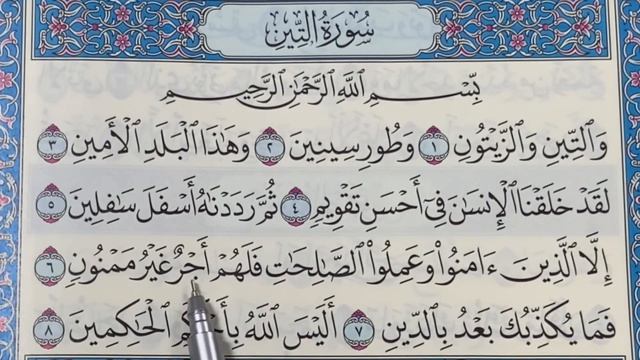 سُورَةُ التِّينِ
بِسْمِ اللَّهِ الرَّحْمَٰنِ الرَّحِيمِ
وَالتِّينِ وَالزَّيْتُونِ ١ وَطُورِ سِينِينَ ٢ وَهَٰذَا الْبَلَدِ الْأَمِينِ ٣
لَقَدْ خَلَقْنَا الْإِنسَٰنَ فِىٓ أَحْسَنِ تَقْوِيمٍ ٤ ثُمَّ رَدَدْنَٰهُ أَسْفَلَ سَٰفِلِينَ ٥
إِلَّا الَّذِينَ ءَامَنُوا وَعَمِلُوا الصَّٰلِحَٰتِ فَلَهُمْ أَجْرٌ غَيْرُ مَمْنُونٍ ٦
فَمَا يُكَذِّبُكَ بَعْدُ بِالدِّينِ ٧ أَلَيْسَ اللَّهُ بِأَحْكَمِ الْحَٰكِمِينَ ٨